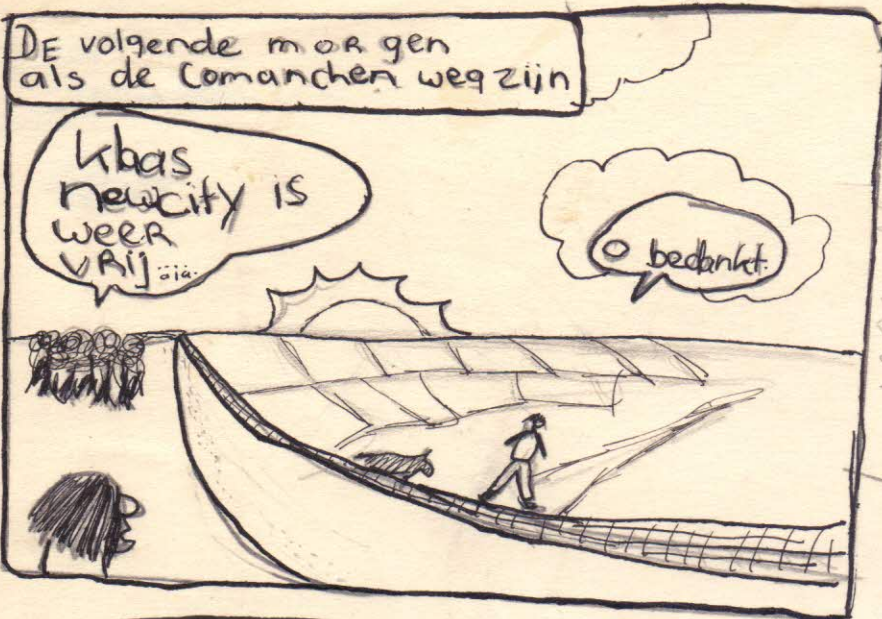 DE volgende morgen
als de Comanchen weg zijn
klaas
newcity is
weer
vrij...
o bedankt.